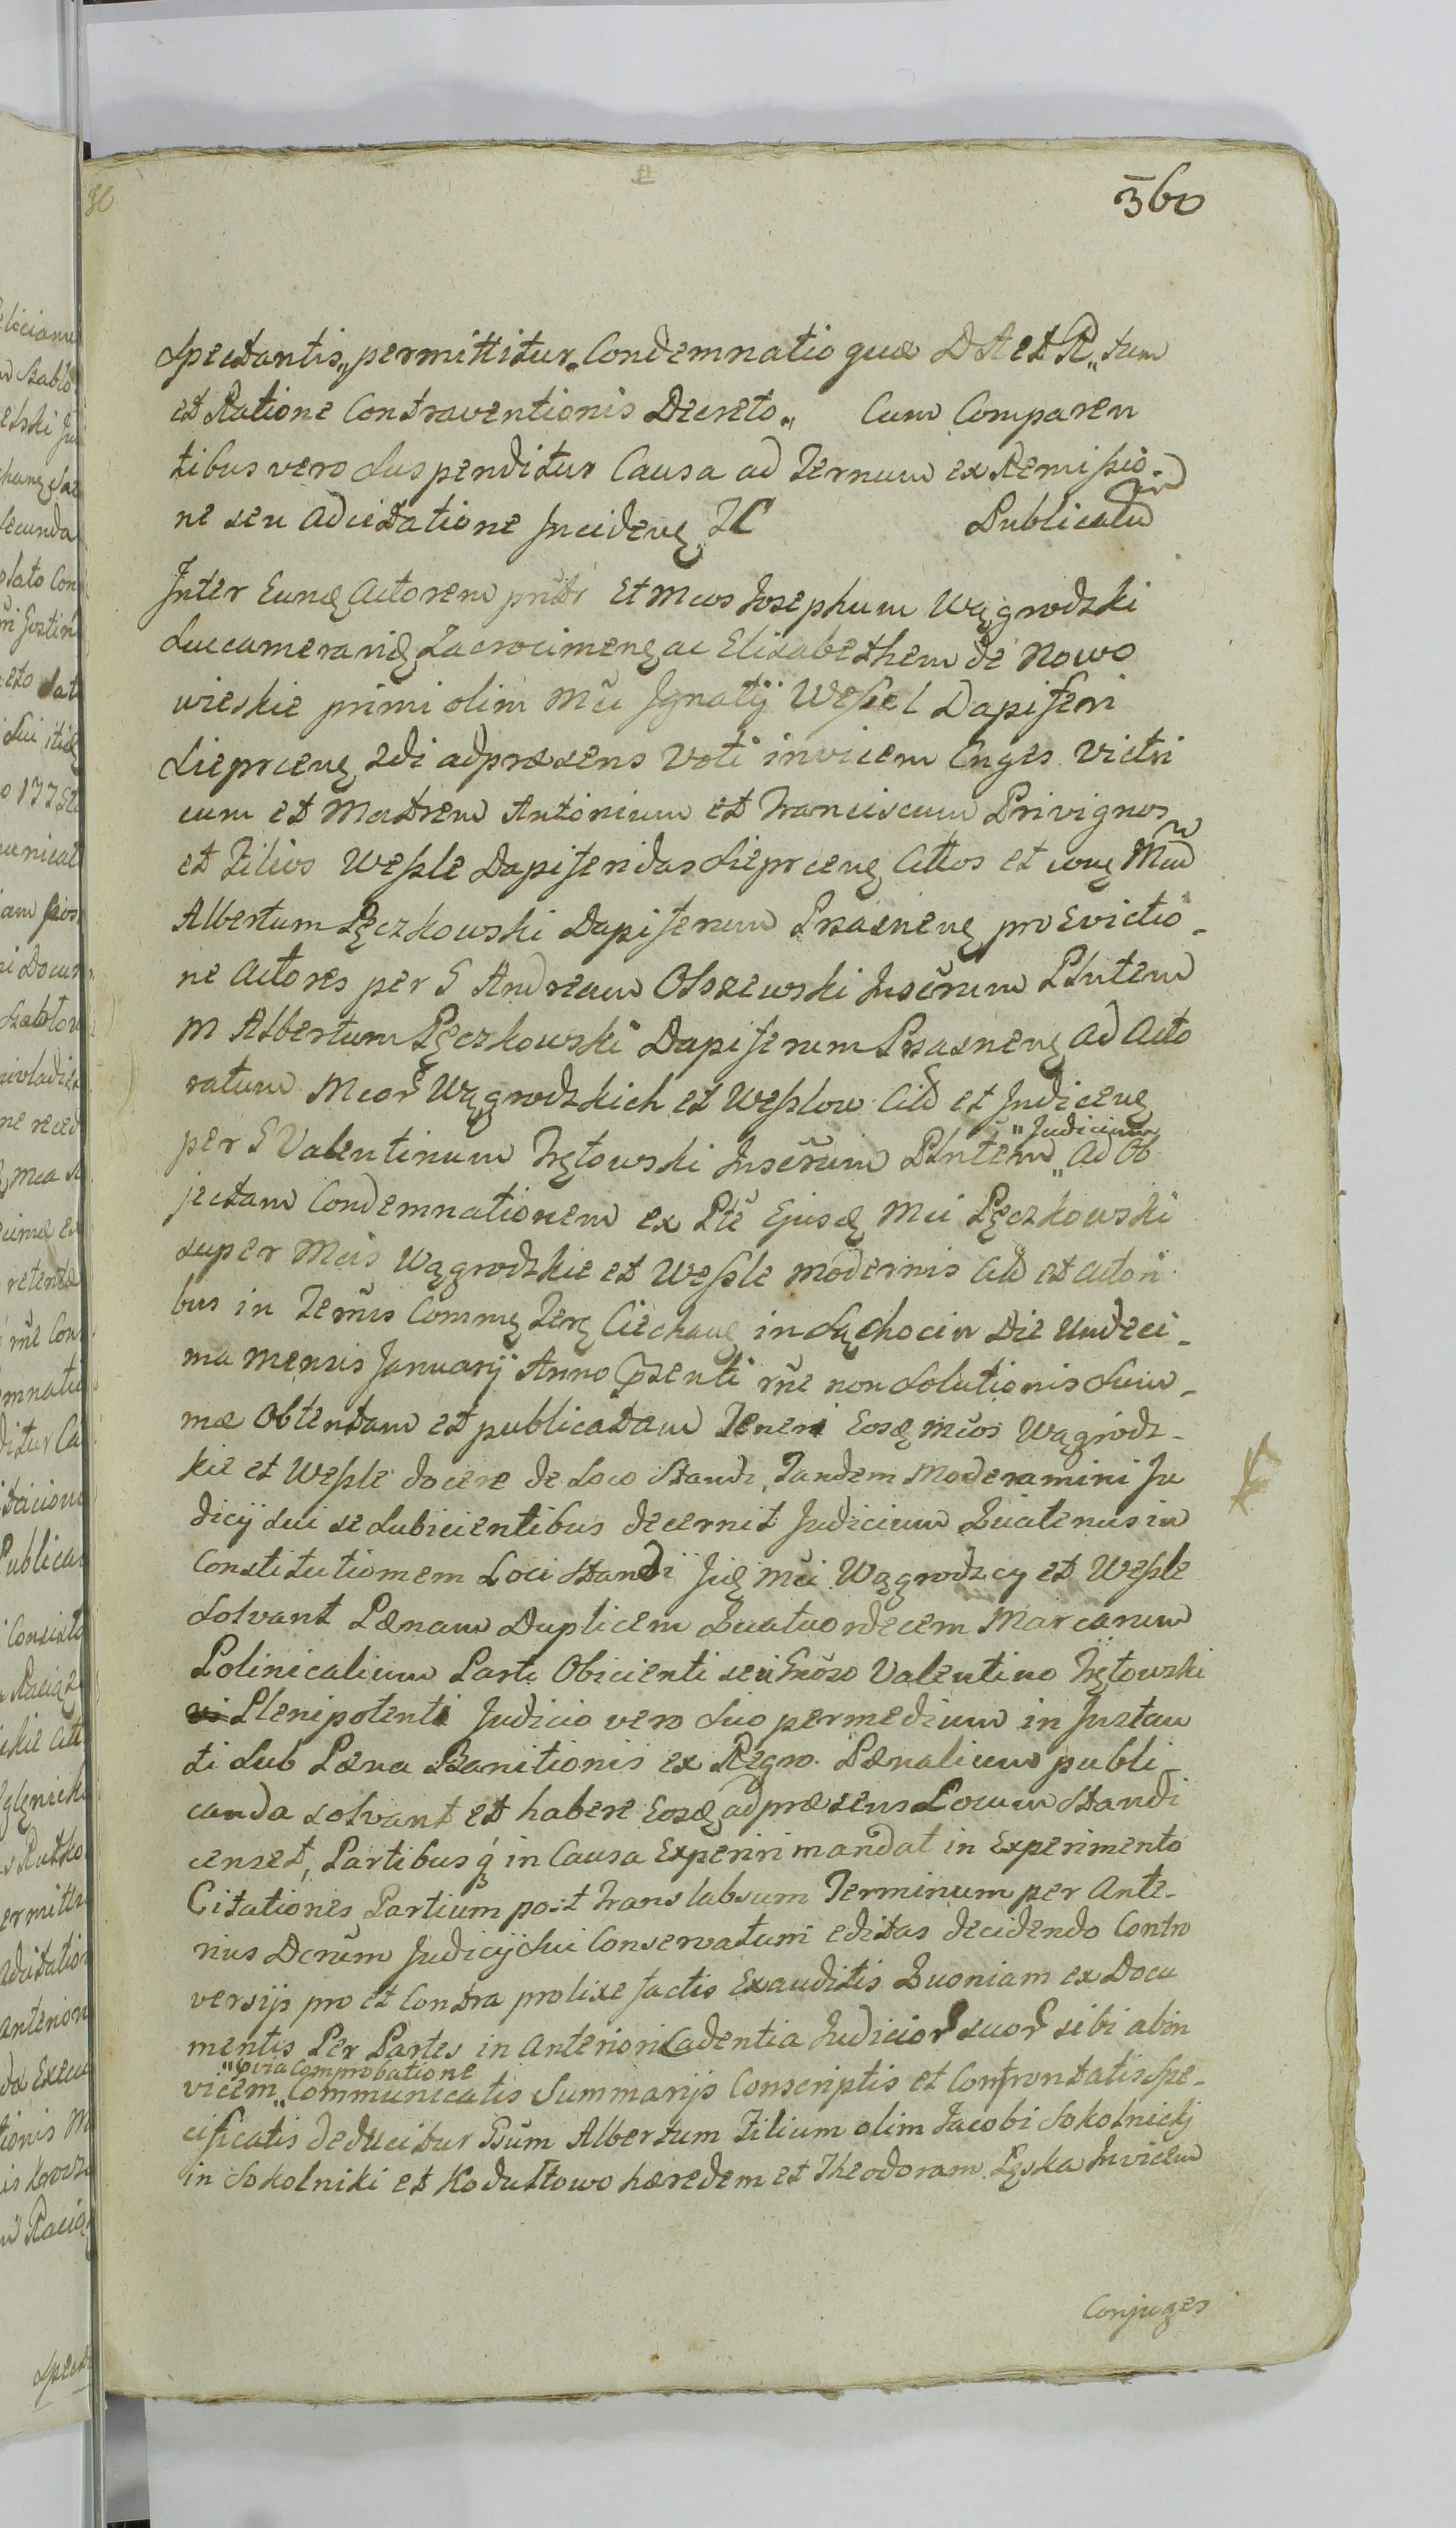 360
Spectantis„ permittitur„ Condemnatio quæ D A et R„ tum
et Ratione Contraventionis Decreto„ Cum Comparen
tibus vero Suspenditur Causa ad Ternum ex Remissio-
ne seu Adcitatione Incidenę JC Publicatū
Inter Eunę Actorem prūtr Et Mcos Josephum Wągrodzki
Succamerarię Zacrocimenę ac Elisabethem de Nowo
wieskie primi olim Mči Ignatÿ Wessel Dapiferi
Sieprcenę 2di adpræsens Voti invicem Cnges Victri
cum et Matrem Antonium et Franciscum Privignos
et Filios Wessle Dapiferidas Sieprcenę Cittos et Mcū
Albertum Pęczkowski Dapiferum Prasnenę pro Evictio-
ne Actores per G Andream Olszewski Inscrum Plntem
M Albertum Pęczkowski Dapiferum Prasnenę Ad Acto
ratum Mcor Wągrodzkich et Wesslow Citt et Judicenę
per G Valentinum Frętowski Inscrum Plntem „Judicium„ Ad Ob
jectam Condemnationem ex Pte Ejusę Mci Pęczkowski
super Mcis Wągrodzkie et Wessle modernis Citt et Actori
bus in Ternis Commę Terę Ciechanę in Sąchocin Die Undeci-
ma mensis Januarÿ Anno Psenti rne non Solutionis Sum-
mæ Obtentam et publicatam Teneri Eosę mcos Wągrodz-
kie et Wessle docere de Loco Standi, Tandem Moderamini Ju
dicÿ Sui se Subicientibus decernit Judicium Quatenus in
Constitutionem Loci Standi Jię Mči Wągrodzcy et Wessle
Solvant Pænam Duplicem Quatuordecem Marcarum
Polinicalium Parti Obicienti seu Gnoso Valentino Frętowski
Plenipotenti Judicio vero Suo permedium in Instan
ti Sub Pæna Banitionis ex Regro Pænalium publi
canda solvant et habere Eosę adpræsens Locum Standi
censet, Partibusq in Causa Experiri mandat in Experimento
Citationes Partium post Translabsum Terminum per Ante-
rius Dcrum Judicÿ Sui Conservatum editas decidendo Contro
versÿs pro et Contra prolixe factis Exauditis Quoniam ex Docu
mentis Per Partes in Anteriori Cadentia Judicior suor sibi abin
vicem „ovia Comprobatione „ Communicatis Summarÿs Conscriptis et Confrontatis Spe-
cificatis deducitur Gsum Albertum Filium olim Jacobi Sokolnickj
in Sokolniki et Kodułtowo hæredem et Theodoram Pęska Invicem
Conjuges